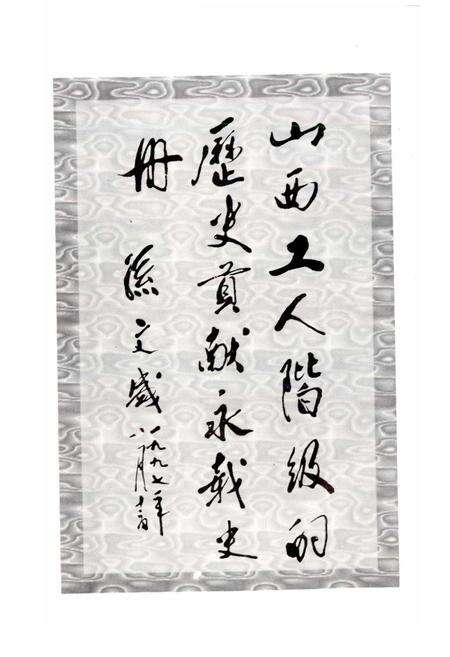 山西工人階级的
歷史貢献永載史
册
孫文盛
一九九七年
八月十二日